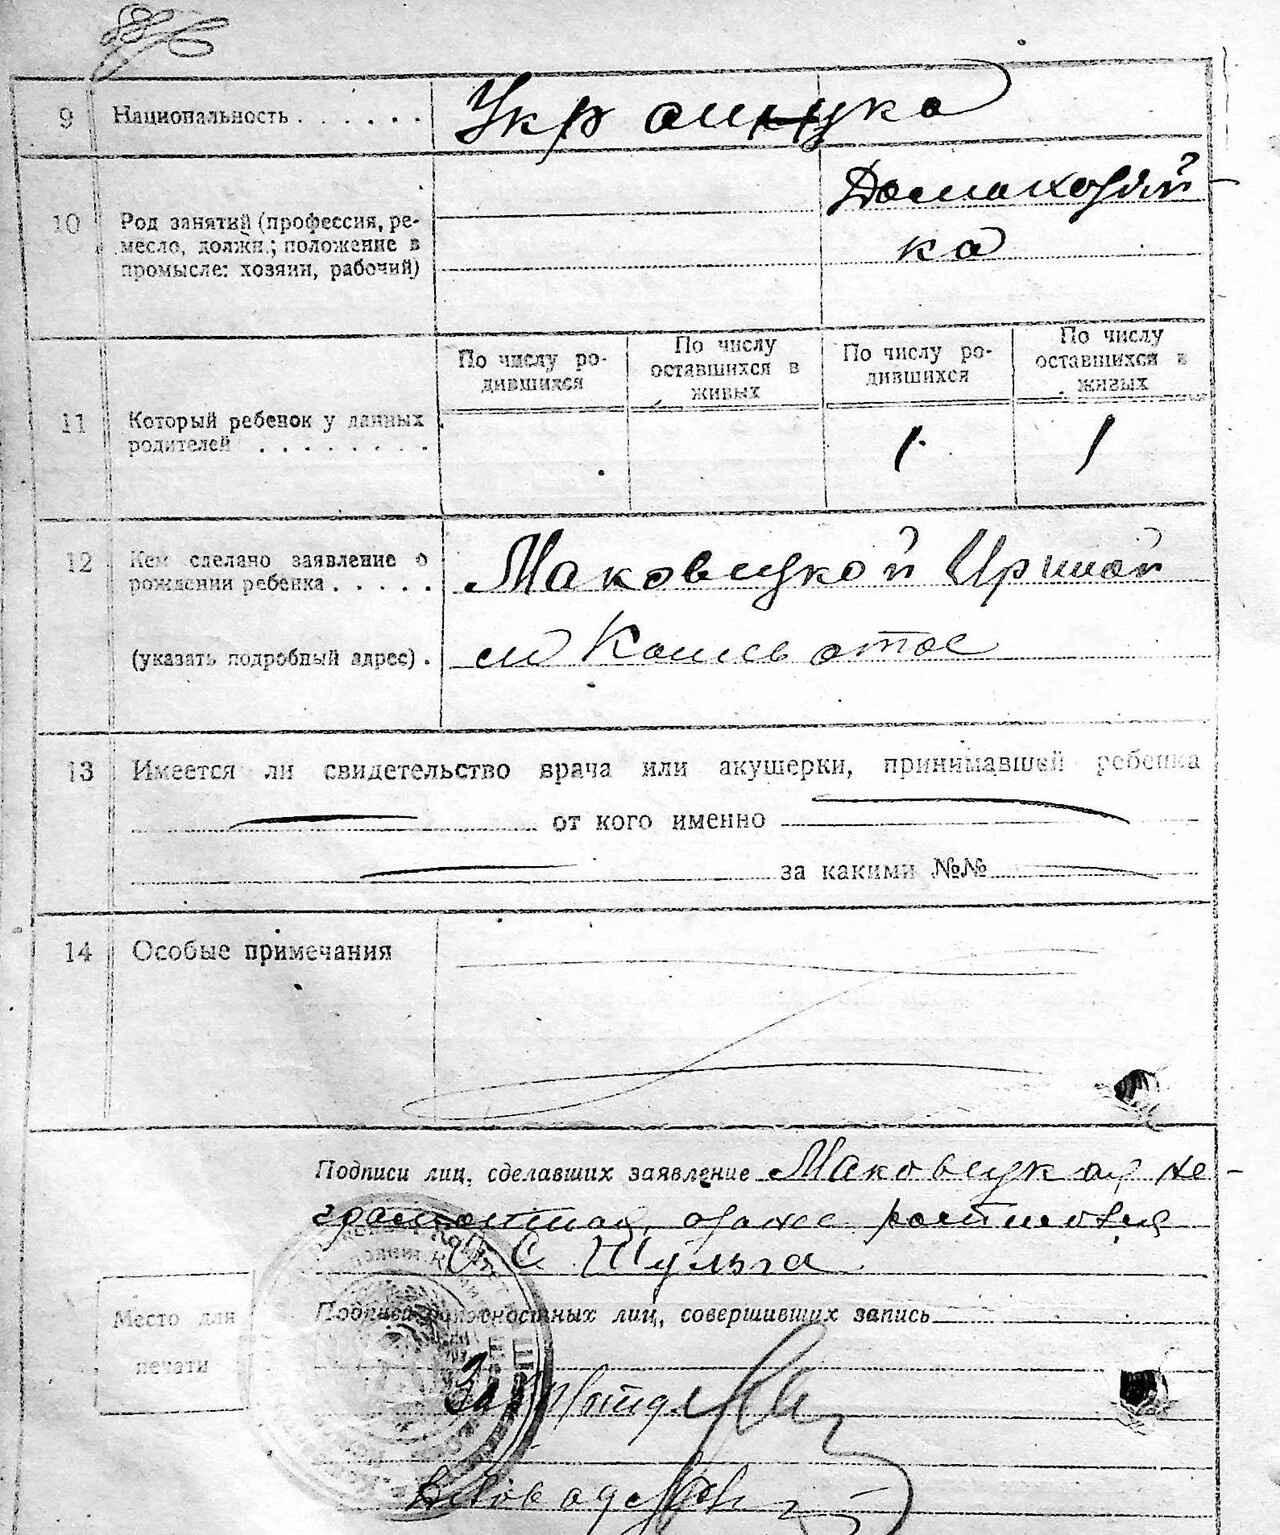 9 Национальность . . . . . . Украинка
Домахозяй-
10 Род занятий (профессия, ре-
месло, должн.; положение в ка
промысле: хозяин, рабочий)
По числу ро-
дившихся
По числу
оставшихся в
живых
По числу ро-
дившихся
По числу
оставшихся в
живых
11 Который ребенок у данных
родителей . . . . . . . . 1 1
12 Кем сделано заявление о
рождении ребенка . . . . . Маковецкой Ириной
(указать подробный адрес) .
13 Имеется ли свидетельство врача или акушерки, принимавшей ребенка
от кого именно
за какими №№
14 Особые примечания
Подписи лиц, сделавших заявление Маковецкая, не-
грамотная,
Шульга
Подписи должностных лиц, совершивших запись
Место для
печати